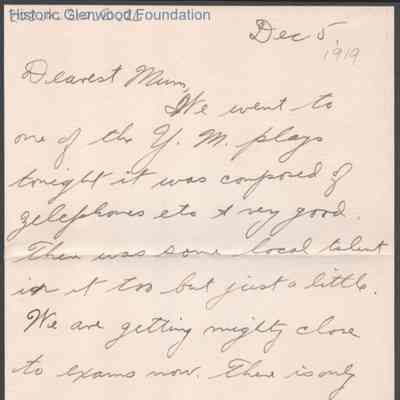 Historic Glenwood Foundation
Dec 5,
1919
Dearest Mum,
We went to
one of the Y. M. plays
tonight it was composed of
zelephones etc & very good.
There was some local talent
in it too but just a little.
We are getting mighty close
to exams now. There is only